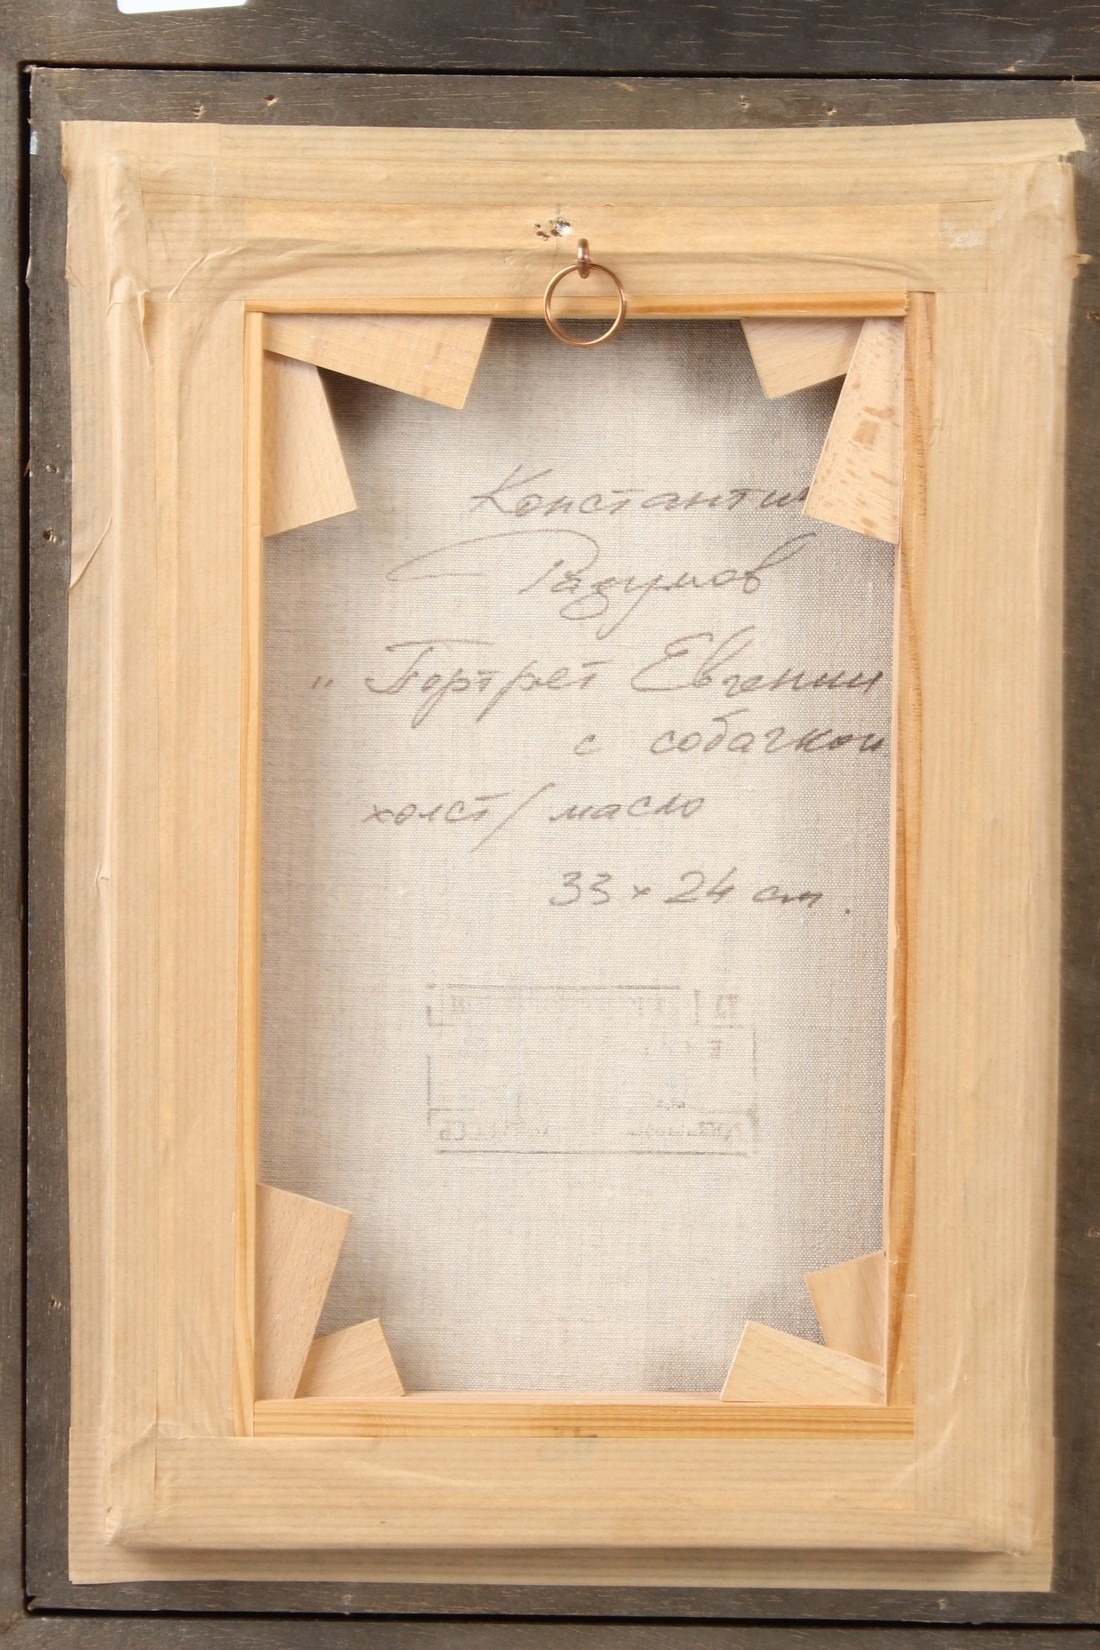 Константин
Разумов
„ Портрет Евгении
с собачкой
холст / масло
33 x 24 см.